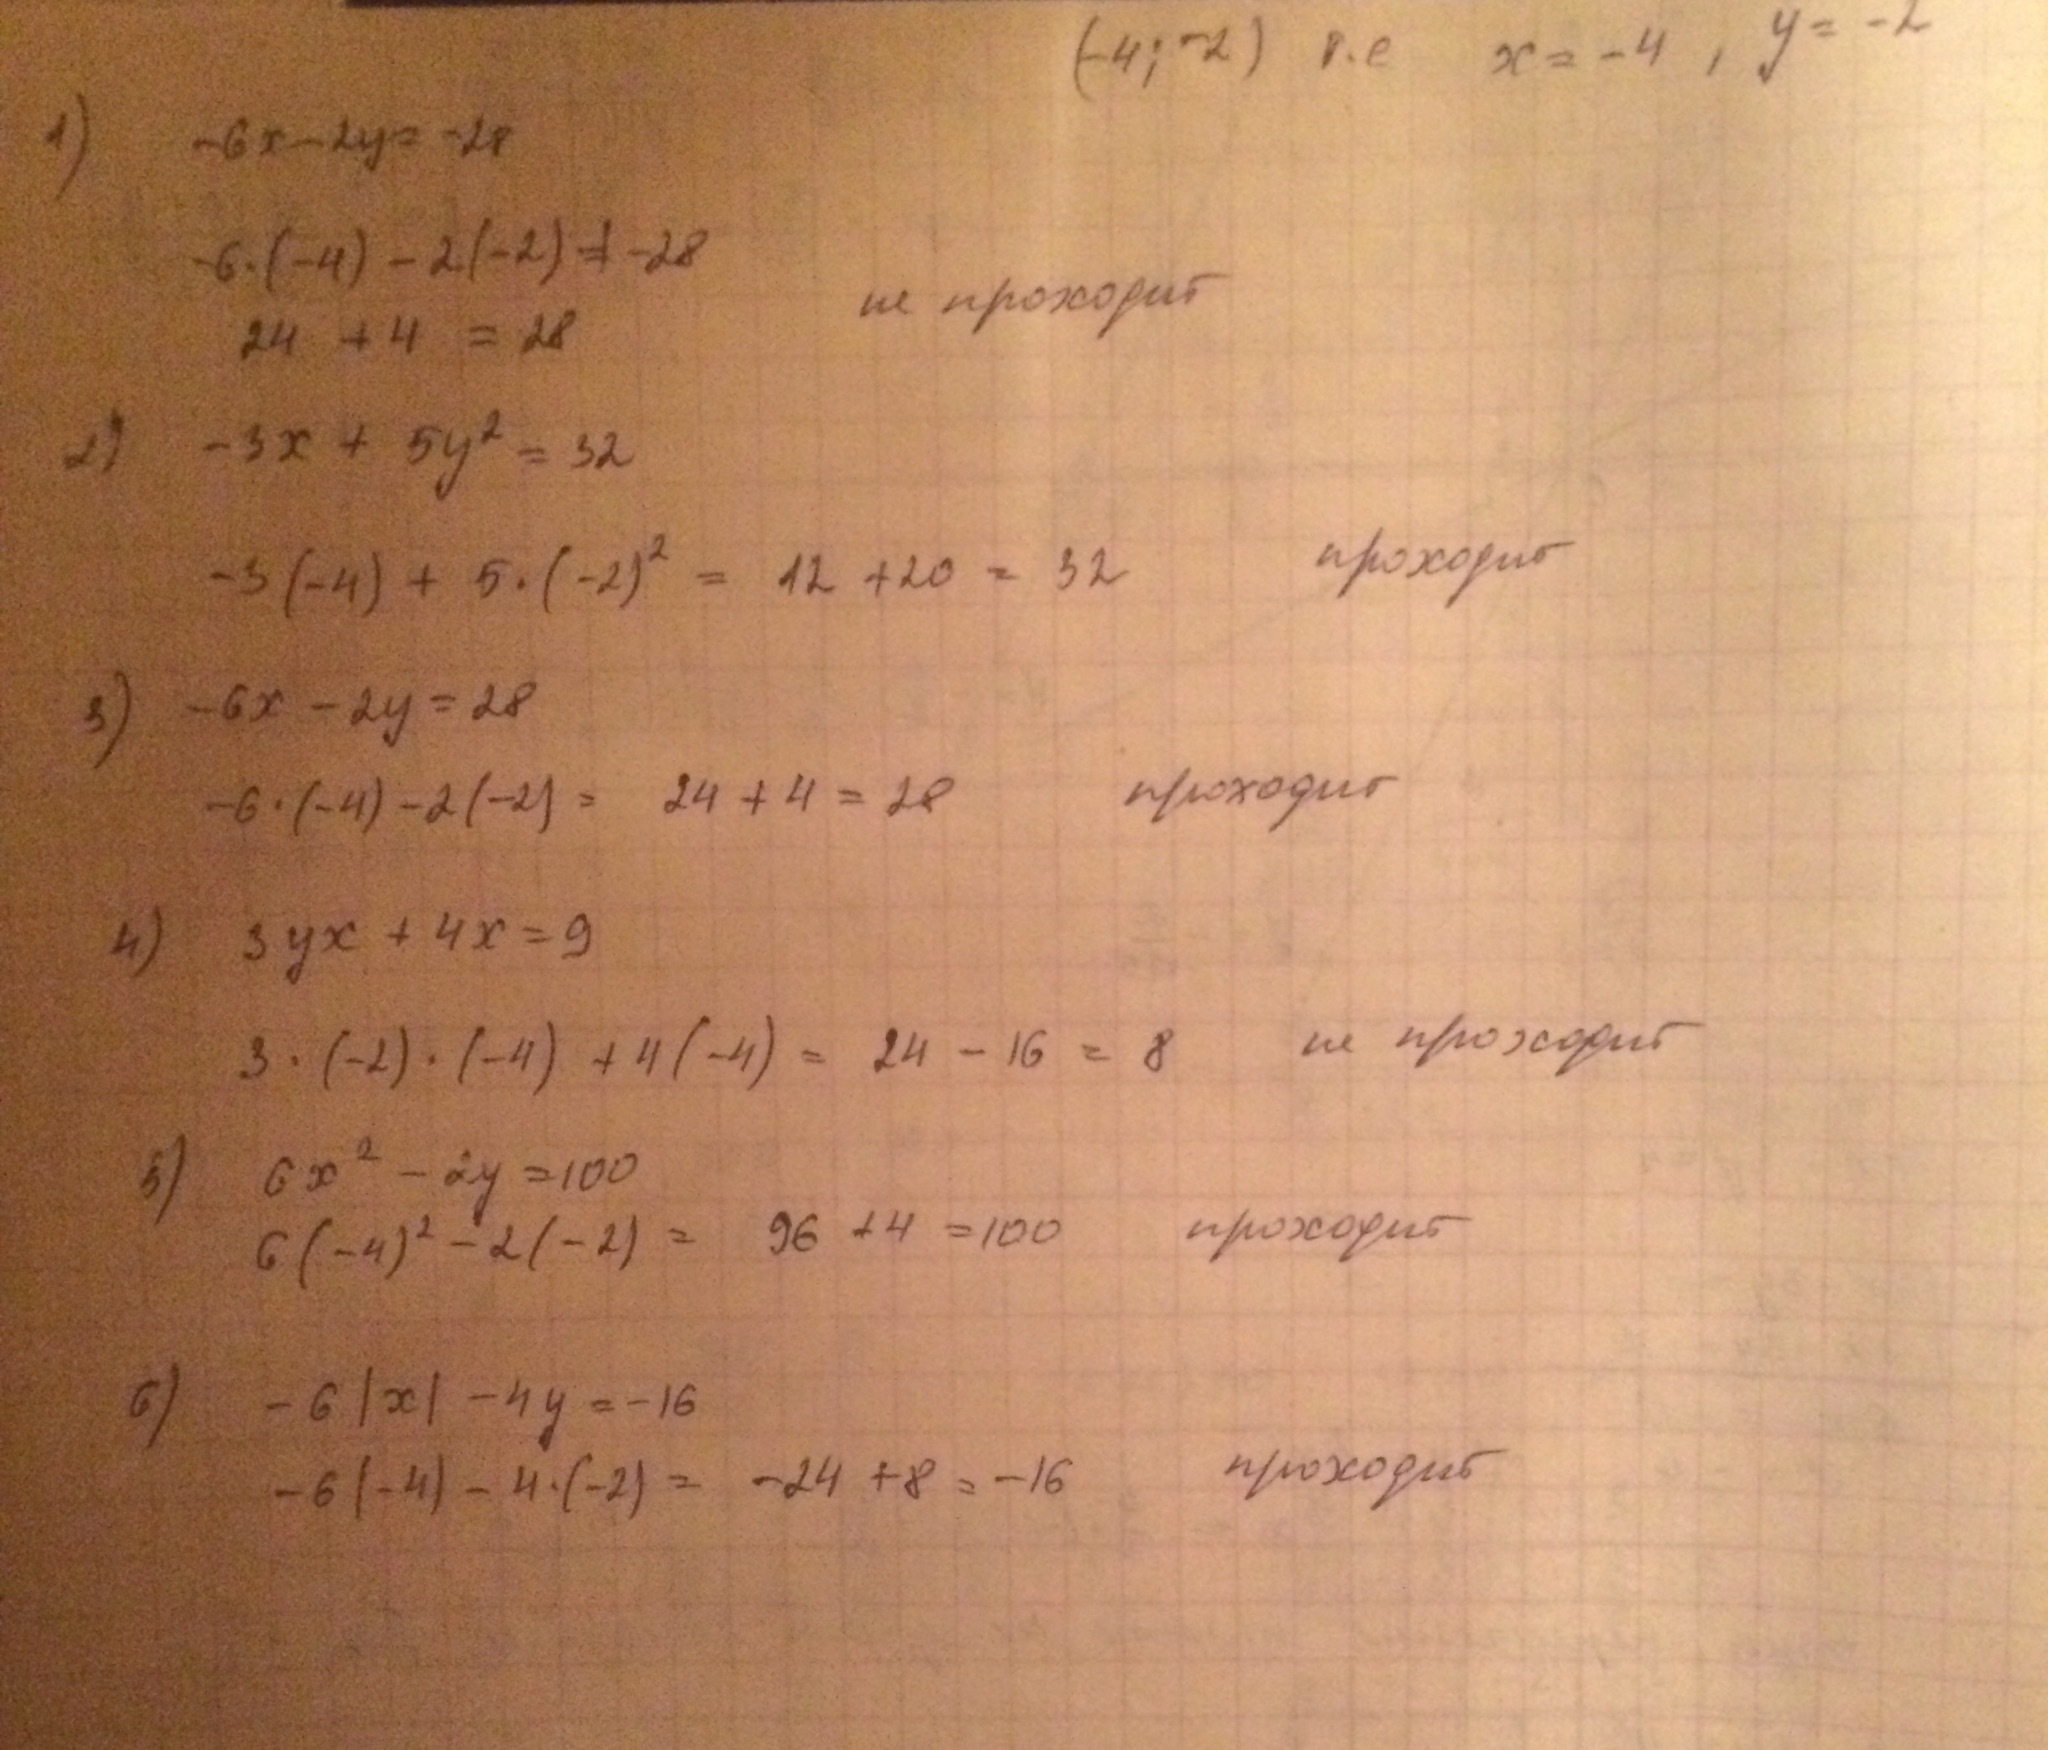 (-4; -2) т.е x = -4, y = -2
1) -6x - 2y = -28
-6·(-4) - 2(-2) ≠ -28
24 + 4 = 28 не проходит
2) -3x + 5y² = 32
-3(-4) + 5·(-2)² = 12 + 20 = 32 проходит
3) -6x - 2y = 28
-6·(-4) - 2(-2) = 24 + 4 = 28 проходит
4) 3yx + 4x = 9
3·(-2)·(-4) + 4(-4) = 24 - 16 = 8 не проходит
5) 6x² - 2y = 100
6(-4)² - 2(-2) = 96 + 4 = 100 проходит
6) -6|x| - 4y = -16
-6|-4| - 4·(-2) = -24 + 8 = -16 проходит